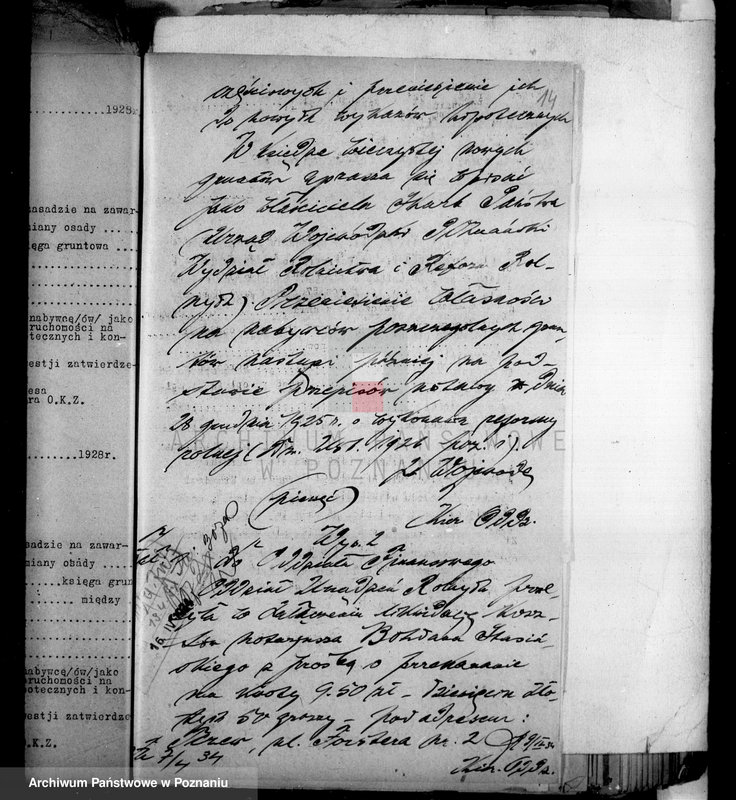 1928r
asadzie na zawar-
miany osady ....
ęga gruntowa ...
nabywcę/ów/ jako
ruchomości na
tecznych i kon-
westji zatwierdze-
esa
ra O.K.Z.
1928r.
sadzie na zawar-
miany osady
księga grun
między
nabywcę/ów/jako
ruchomości na
otecznych i kon-
westji zatwierdze
O.K.Z.
14
częściowych i przeniesienie ich
do nowych wykazów hipotecznych
W księdze wieczystej nowych
gruntów uprasza się wpisać
jako właściciela Skarb Państwa
(Urząd Wojewódzki Poznański
Wydział Rolnictwa i Reform Rol-
nych) Przeniesienie własności
na nabywców poszczególnych grun-
tów nastąpi później na pod-
stawie przepisów ustawy z dnia
28 grudnia 1925 r. o wykonaniu reformy
rolnej (Dz. Ust. 1926 poz. 1).
Z Wojewodę
(pieczęć)
Kier.
2
Do Oddziału Finansowego
Oddział Urządzeń Rolnych prze-
syła w załączeniu likwidację kosz-
tów notarjusza Bohdana
z prośbą o przekazanie
mu kwoty 9.50 zł - dziewięciu zło-
tych 50 groszy - pod adresem:
ul. Förstera nr. 2
34
Kier.
ARCHIWUM PAŃSTWOWE
W POZNANIU
Archiwum Państwowe w Poznaniu